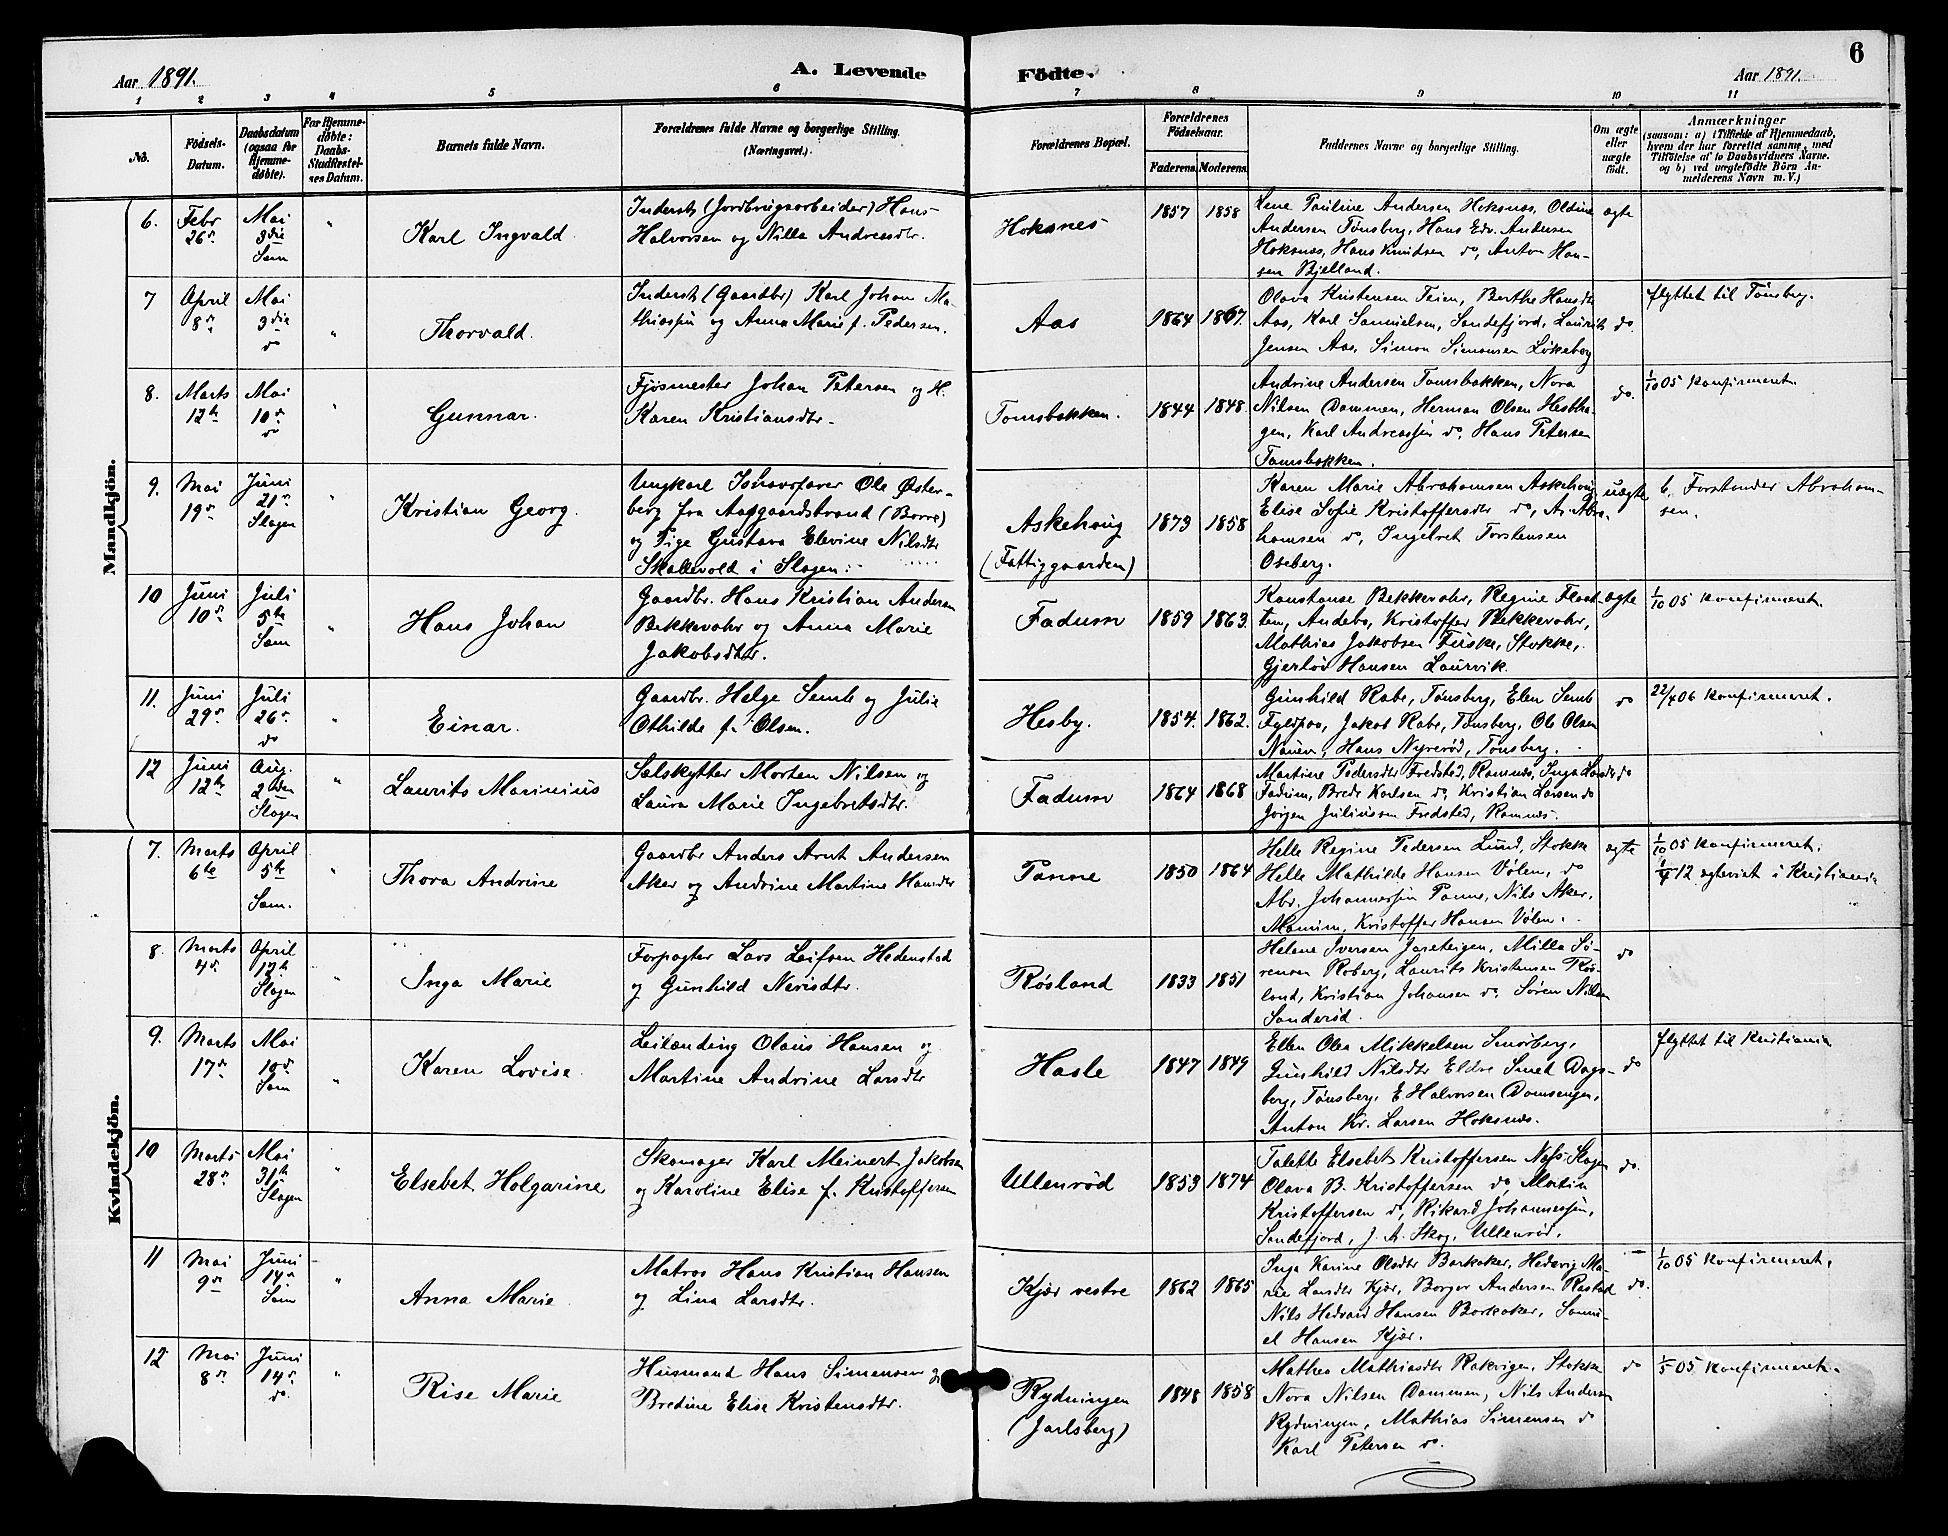 Aar 1891.
A. Levende
Födte.
Aar 1891.
6
1 2 3 4 5 6 7 8 9 10 11
No.
Födsels-
Datum.
Daabsdatum
(ogsaa for
Hjemme-
døbte).
For Hjemme-
døbte:
Daabs-
Stadfæstel-
ses Datum.
Barnets fulde Navn.
Forældrenes fulde Navne og borgerlige Stilling.
(Næringsvei.)
Forældrenes Bopæl.
Forældrenes
Födselsaar.
Faderens. Moderens.
Faddernes Navne og borgerlige Stilling.
Om ægte
eller
uægte
födt.
Anmærkninger
(saasom: a) i Tilfælde af Hjemmedaab,
hvem der har forrettet samme, med
Tilföielse af to Daabsvidners Navne.
og b) ved uægtefödte Börn An-
melderens Navn m. V.)
Mandkjön.
6.
Febr
26de
Mai
3die
Sem
"
Karl Ingvald
Inderst (Jordbrugsarbeider) Hans
Halvorsen og Nilla Andreasdtr.
Hoksnes
1857 1858
Lene Pauline Andersen Hoksnes, Oldine
Andersen Tønsberg, Hans Edv. Andersen
Hoksnes, Hans Knudsen do, Anton Han-
sen Bjelland.
ægte
7
April
8de
Mai
3die
do
"
Thorvald.
Inderst (Gaardbr) Karl Johan Ma-
thiassen og Anna Marie f. Pedersen.
Aas
1864 1867.
Olava Kristensen Teien, Berthe Hansdtr
Aas, Karl Samuelsen, Sandefjord, Laurits
Jensen Aas, Simon Simonsen Løkeberg
do.
flyttet til Tønsberg.
8.
Marts
12te
Mai
10de
do
"
Gunnar.
Fjøsmester Johan Petersen og H.
Karen Kristiansdtr.
Tomsbakken.
1844 1848.
Andrine Andersen Tomsbakken, Nora
Nilsen Dammen, Herman Olsen Hestha-
gen, Karl Andreassen do, Hans Petersen
Tomsbakken.
do.
1/10 05 konfirmeret.
9.
Mai
19de
Juni
21de
Slagen
"
Kristian Georg.
Ungkarl Ishavsfarer Ole Øster-
berg fra Aasgaardstrand (Borre)
og Pige Gustava Elevine Nilsdtr
Skallevold i Slagen.
Askehoug
(Fattiggaarden)
1873 1858
Karen Marie Abrahamsen Askehoug
Elise Sofie Kristoffersdtr do, A. Abra-
hamsen do, Ingebret Torstensen
Oseberg.
uægte
b. Forstander Abraham-
sen.
10
Juni
10de
Juli
5te
Sem
"
Hans Johan
Gaardbr. Hans Kristian Andersen
Bekkevahr og Anna Marie
Jakobsdtr.
Fadum
1859 1863.
Konstanse Bekkevahr, Regine Flaat-
ten, Andebo, Kristoffer Bekkevahr,
Mathias Jakobsen Fuske, Stokke,
Gjertrød Hansen Laurvik.
ægte
1/10 05 konfirmeret.
11.
Juni
29de
Juli
26de
do
"
Einar.
Gaardbr. Helge Semb og Julie
Othilde f. Olsen.
Hesby.
1854. 1862.
Gunhild Rabe, Tønsberg, Elen Semb
Fyldpaa, Jakob Rabe, Tønsberg, Ole Olsen
Nauen, Hans Nyrerød, Tønsberg.
do
22/4 06 konfirmeret.
12
Juni
12te
Aug.
2den
Slagen
"
Laurits Marinius
Sælskytter Morten Nilsen og
Laura Marie Ingebretsdtr.
Fadum
1864 1868
Martine Pedersdtr Fredsted, Ramnes, Inga Larsdtr
Fadum, Brede Karlsen do, Kristian Larsen do
Jørgen Juliussen Fredsted, Ramnes.
do
Kvindekjön.
7.
Marts
6te
April
5te
Sem.
"
Thora Andrine
Gaardbr Anders Arnt Andersen
Aker og Andrine Martine Hansdtr
Tanne
1850 1864
Helle Regine Pedersen Lund, Stokke
Helle Mathilde Hansen Vølen, do
Abr. Johannessen Tanne, Nils Aker,
Kristoffer Hansen Vølen.
ægte
1/10 05 konfirmeret.
12 egteviet i Kristiania
8.
Marts
4de
April
12te
Slagen
"
Inga Marie
Forpagter Lars Leifsen Hedenstad
og Gunhild Nerisdtr.
Røsland
1833 1851
Helene Iversen Jareteigen, Milla Sø-
rensen Roberg, Laurits Kristensen Røs-
land, Kristian Johansen do, Søren Nilsen
Sanderød.
do
9.
Marts
17de
Mai
10de
Sem
"
Karen Lovise.
Leilænding Olaus Hansen og
Martine Andrine Larsdtr
Hasle
1847 1849
Ellen Olea Mikkelsen Smørberg,
Gunhild Nilsdtr Eldre Smed Dags-
berg, Tønsberg, E Halvorsen Damsengen,
Anton Kr. Larsen Hoksnes.
do
flyttet til Kristiania
10
Marts
28de
Mai
31te
Slagen
"
Elsebet Holgarine
Skomager Karl Meinert Jakobsen
og Karoline Elise f. Kristoffersen
Ullenrød
1853 1874
Talette Elsebet Kristoffersen Næs-Slagen
Olava B. Kristoffersen do, Martin
Kristoffersen do, Rikard Johannessen,
Sandefjord, J. A. Skog, Ullenrød.
do.
11
Mai
9de
Juni
14de
Sem
"
Anna Marie
Matros Hans Kristian Hansen
og Lina Larsdtr.
Kjær vestre
1862 1865
Inga Karine Olsdtr Barkaker, Hedevig Ma-
rie Larsdtr Kjær, Borger Andersen Rastad
Nils Hedvard Hansen Barkaker, Samu-
el Hansen Kjær.
do.
1/10 05 konfirmeret.
12
Mai
8de
Juni
14de
do.
"
Rise Marie
Husmand Hans Simensen og
Bredine Elise Kristensdtr.
Rydningen
(Jarlsberg)
1848 1858
Mathea Mathiasdtr Rakvigen, Stokke
Nora Nilsen Dammen, Nils Andersen
Rydningen, Mathias Simensen do
Karl Petersen do.
do
1/5 05 konfirmeret.